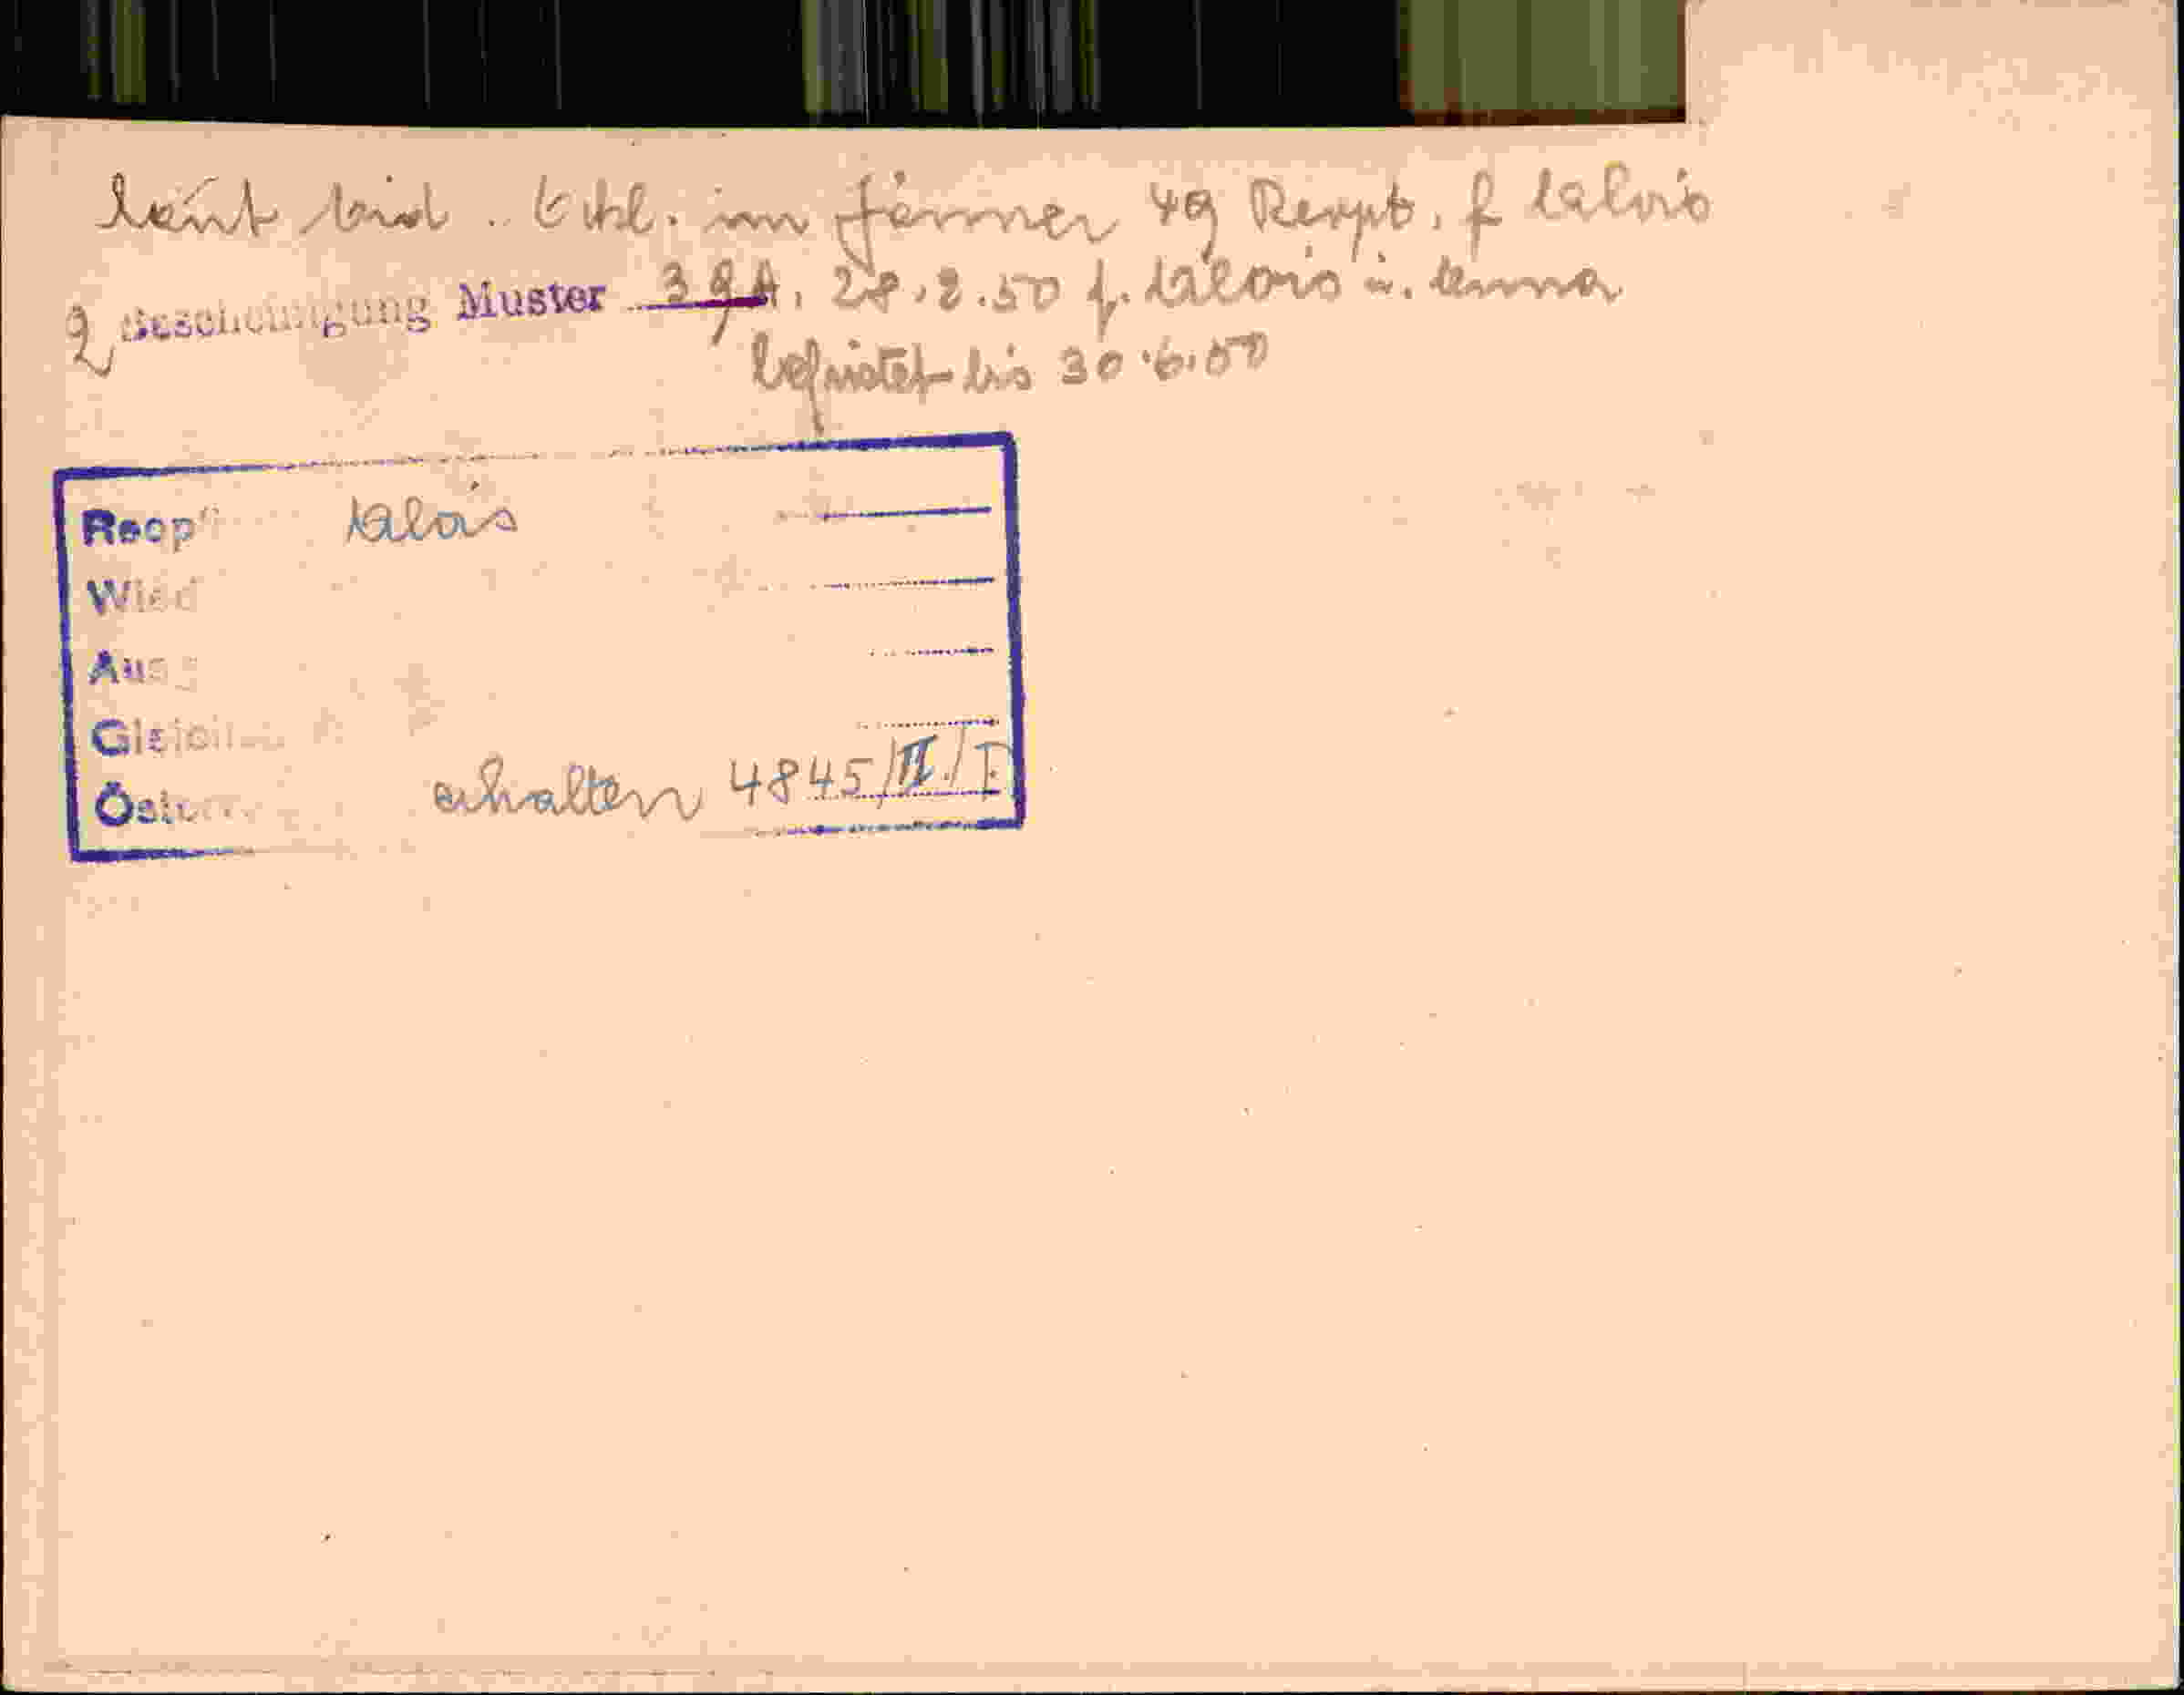 laut eid. Erkl. im Jänner 49 Reispt. f Alois
2 Bescheinigung Muster 39A, 28.2.50 f. Alois u. Anna
befristet bis 30.6.50
Reop Alois
Wied
Aus
Gleich
Österr. erhalten 4845/II./I